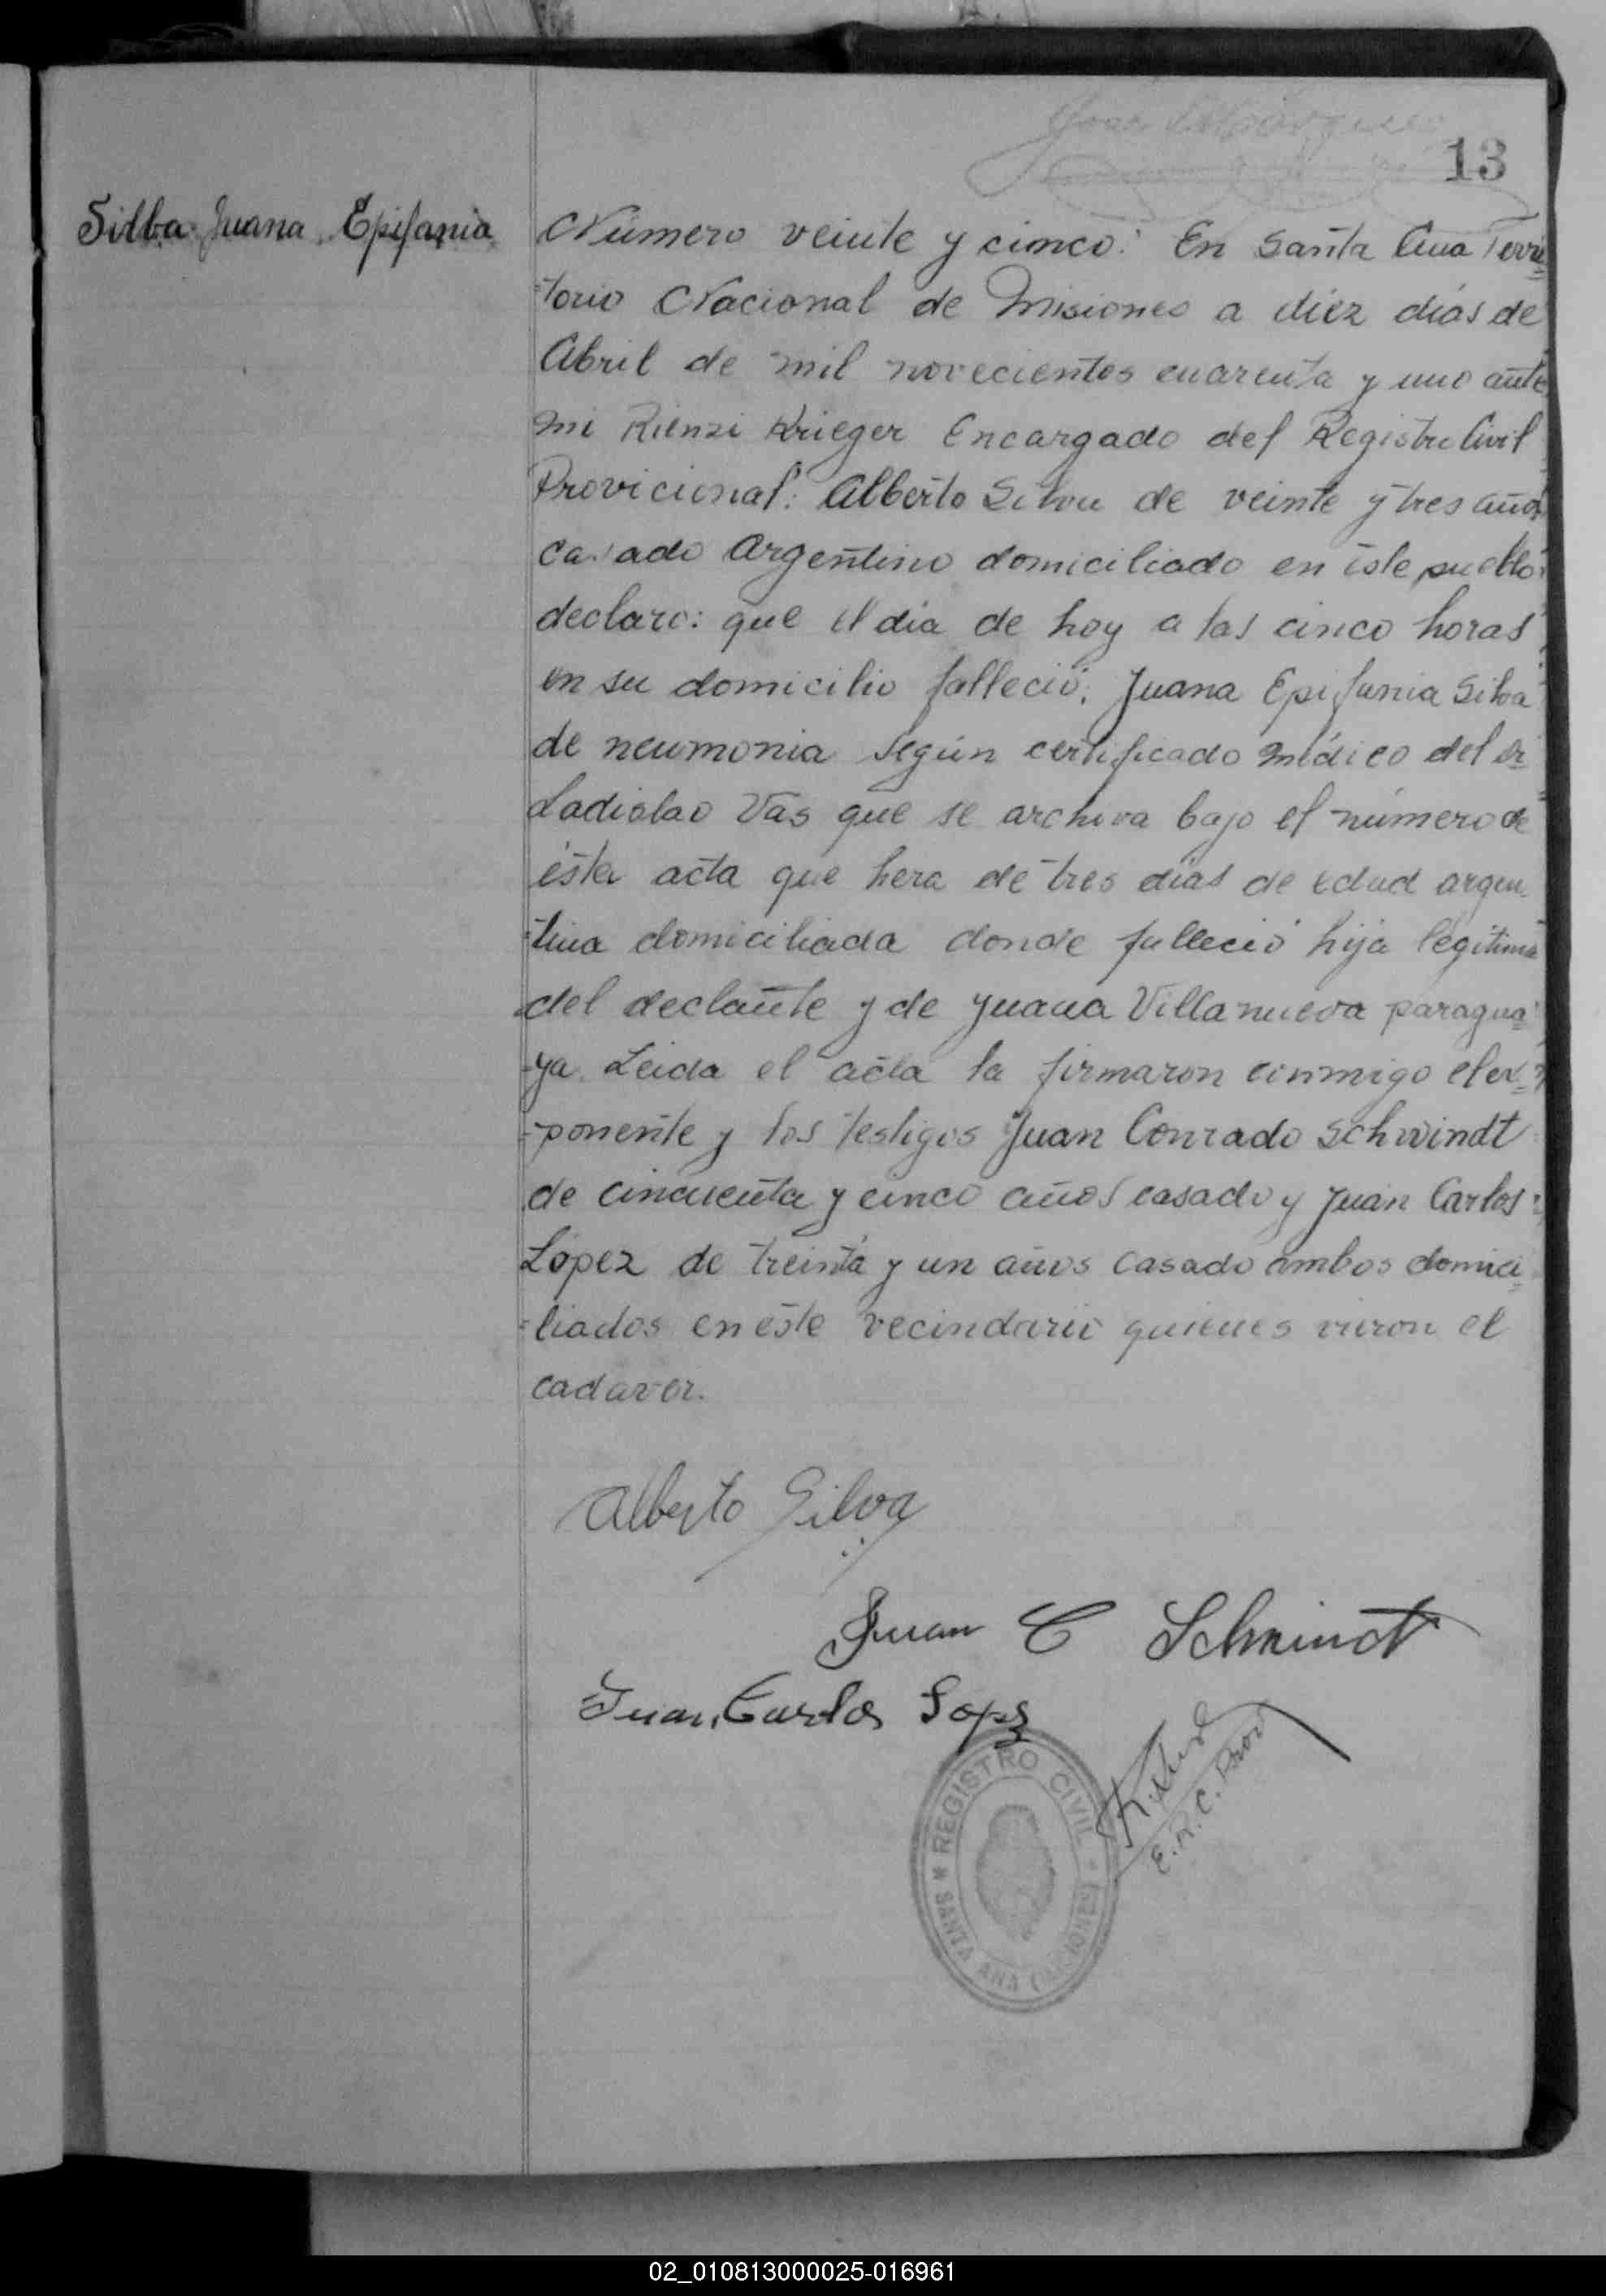 13
Silba Juana Epifania
Número veinte y cinco: En Santa Ana Terri=
=torio Nacional de Misiones a diez días de
Abril de mil novecientos cuarenta y uno ante
mi Rienzi Krieger Encargado del Registro Civil
Provicional: Alberto Silva de veinte y tres años
casado argentino domiciliado en éste pueblo
declaro: que el día de hoy a las cinco horas
en su domicilio falleció: Juana Epifania Silva
de neumonia según certificado médico del Dr
Ladislao Vas que se archiva bajo el número de
ésta acta que hera de tres días de edad argen
=tina domiciliada donde falleció hija legítima
del declante y de Juana Villanueva paragua=
=ya. Leida el acta la firmaron conmigo el ex=
=ponente y los testigos Juan Conrado Schwindt
de cincuenta y cinco años casado y Juan Carlos
López de treinta y un años casado ambos domici=
=liados en éste vecindario quienes vieron el
cadaver.
Alberto Silva
Juan C Schwindt
Juan Carlos Lopez
E.R.C. Prov
REGISTRO CIVIL
SANTA ANA (MISIONES)
02_010813000025-016961